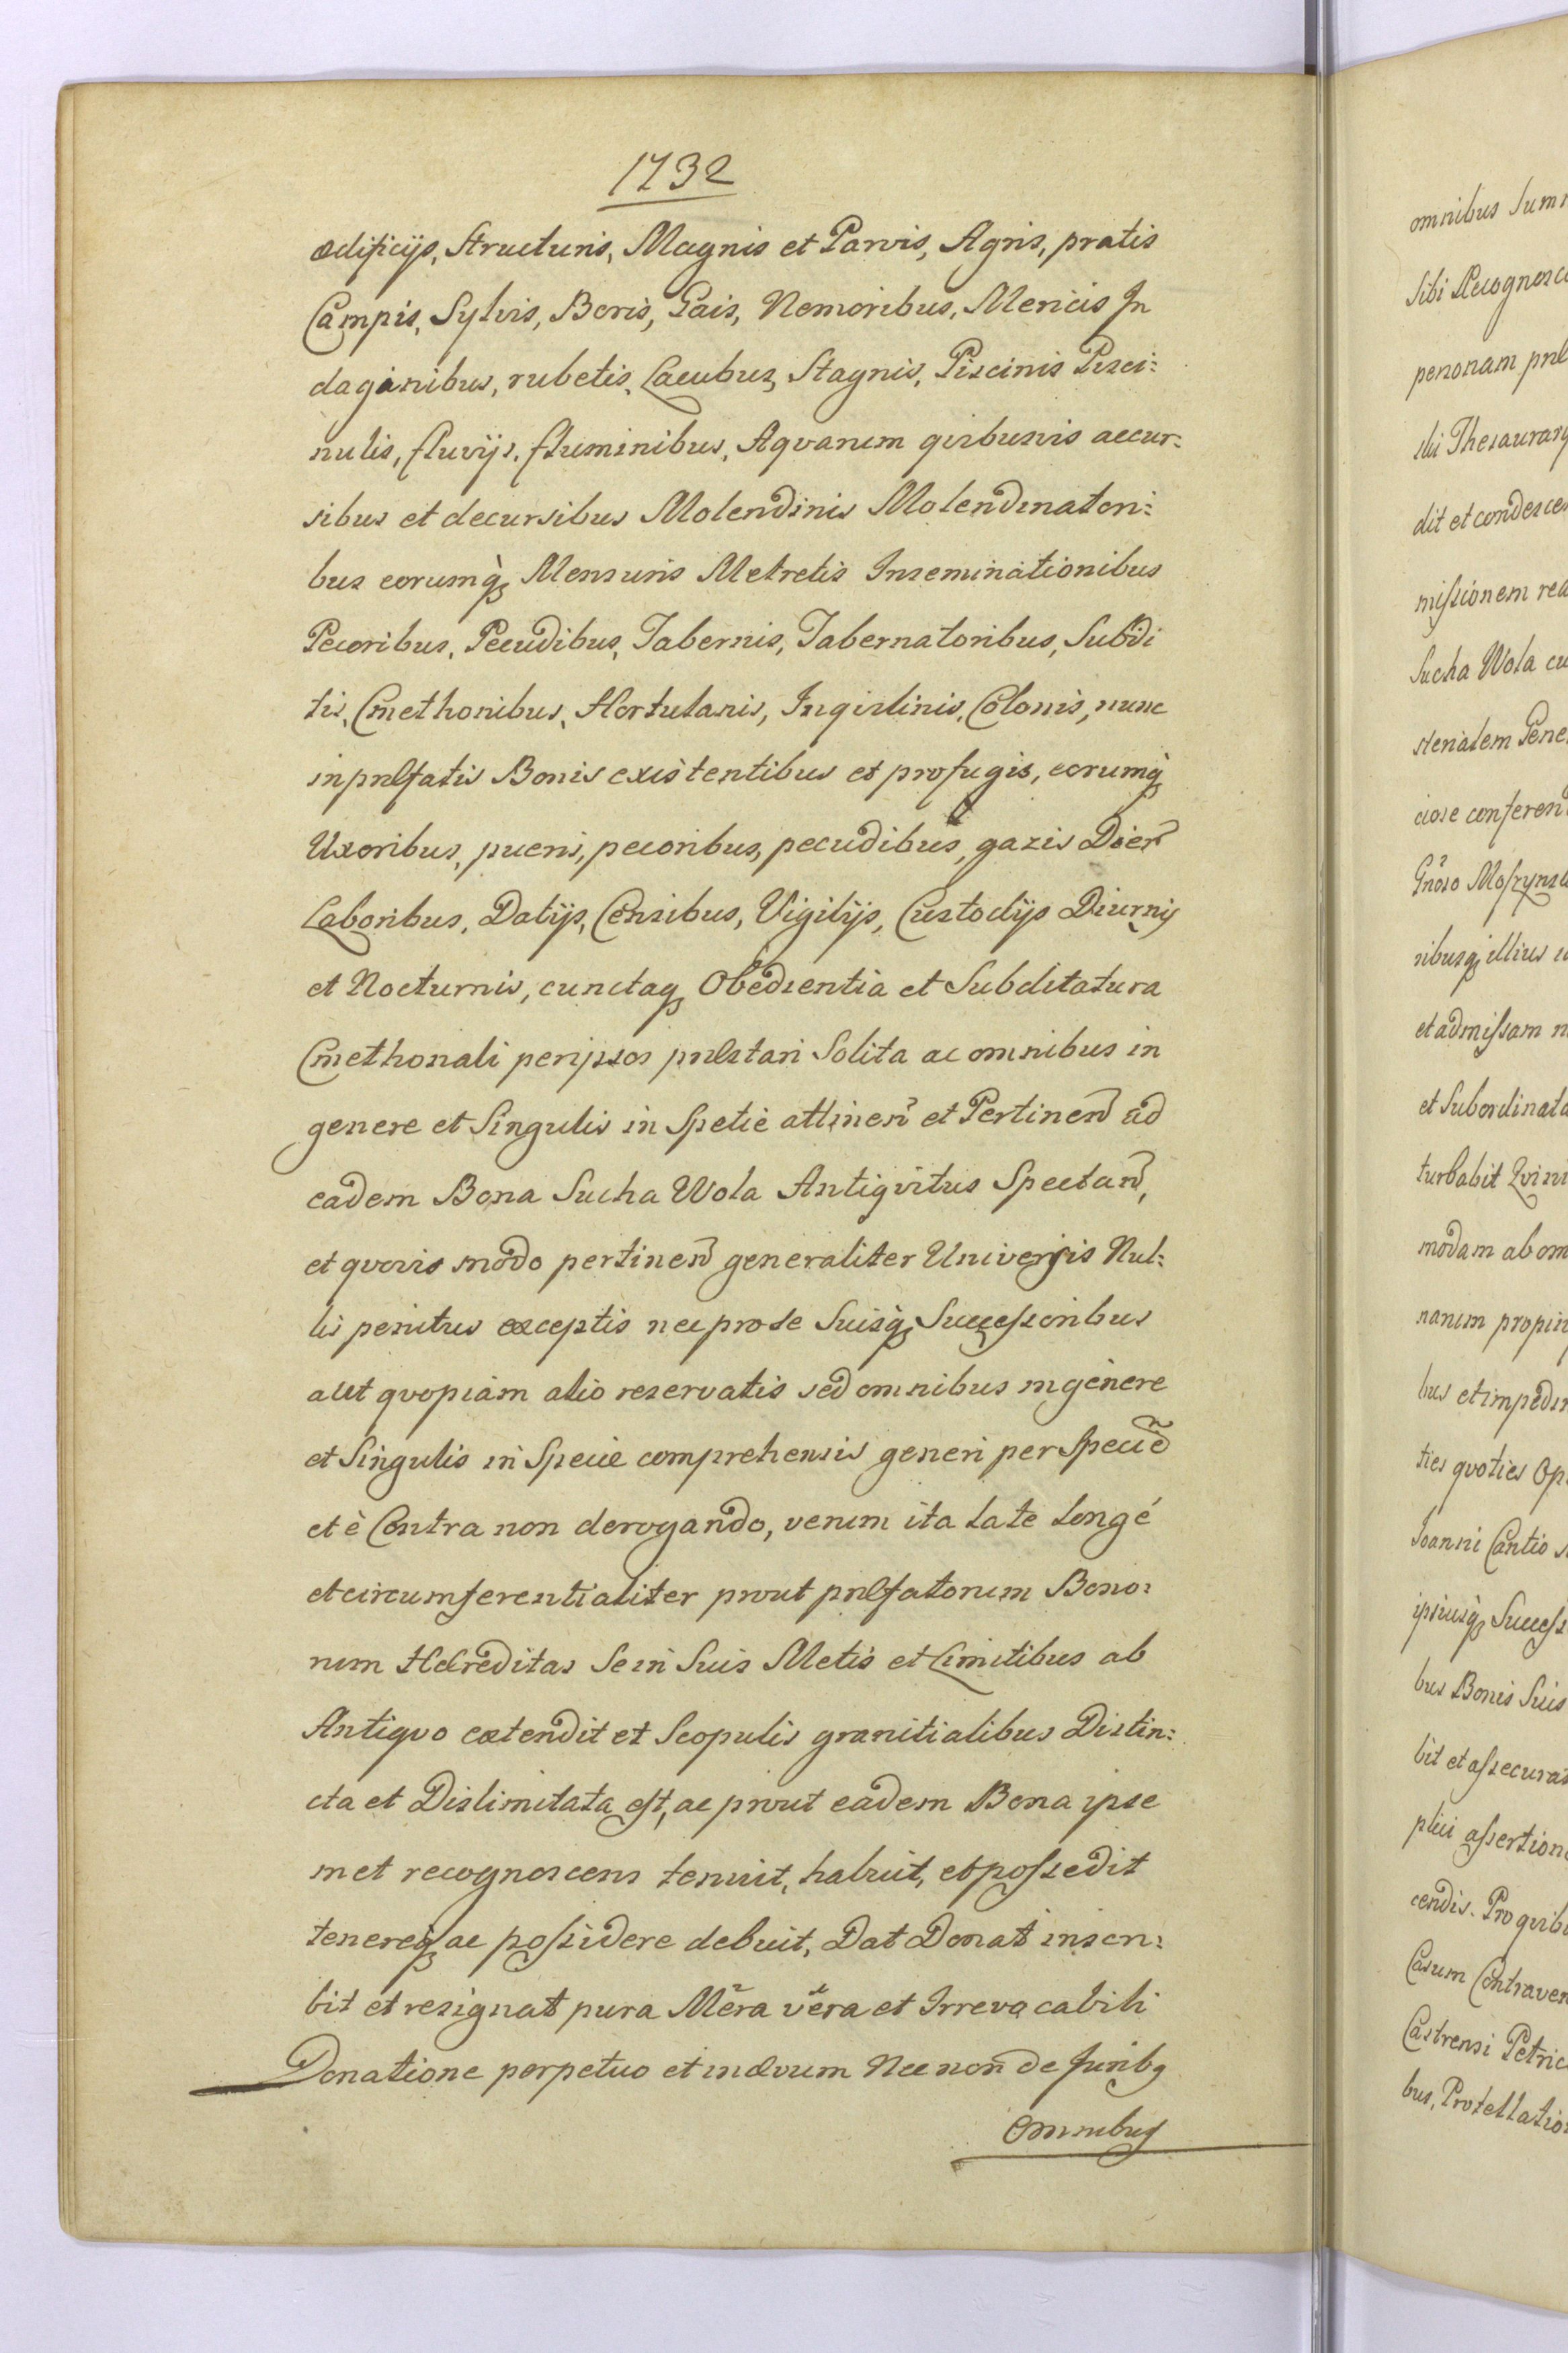 1732
ædificijs, Structuris, Magnis et Parvis, Agris, pratis
Campis, Sylvis, Boris, Gais, Nemoribus, Mericis In
daginibus, rubetis, Lacubus, Stagnis, Piscinis Pisci:
nulis, fluvijs, fluminibus, Aqvarum qvibusvis accur:
sibus et decursibus Molendinis Molendinatori:
bus eorumq̀ Mensuris Metretis Inseminationibus
Pecoribus, Pecudibus, Tabernis, Tabernatoribus, Subdi
tis, Cmethonibus, Hortulanis, Inqvilinis, Colonis, nunc
in præfatis Bonis existentibus et profugis, eorumq̀
Uxoribus, pueris, pecoribus, pecudibus, gazis Dier̃
Laboribus, Datijs, Censibus, Vigilijs, Custodijs Diurnis
et Nocturnis, cunctaq Obedientia et Subditatura
Cmethonali per ipsos præstari Solita ac omnibus in
genere et Singulis in Spetie attineñ et Pertineñ ad
eadem Bona Sucha Wola Antiqvitus Spectañ,
et qvovis modo pertineñ generaliter Universis Nul:
lis penitus exceptis nec pro se Suisq̀ Successoribus
aut qvopiam alio reservatis sed omnibus in genere
et Singulis in Specie comprehensis generi per Speciẽ
et è Contra non derogando, verum ita late longé
et circumferentialiter prout præfatorum Bono:
rum Hæreditas Se in Suis Metis et Limitibus ab
Antiqvo extendit et Scopulis granitialibus Distin:
cta et Dislimitata est, ac prout eadem Bona ipse
met recognoscens tenuit, habuit, et possedit
tenereq ac possidere debuit, Dat Donat inscri:
bit et resignat pura Mẽra vẽra et Irrevocabili
Donatione perpetuo et in ævum Nec non de Juribq
Omnibus
omnibus Sum
Sibi Recognosc
personam præ
sui Thesaurarij
dit et condesce
missionem rea
Sucha Wola cu
sterialem Gene
ciose conferen
Gnõso Moszyns
ribusq illius
et admissam
et Subordinata
turbabit Qvin
modam ab om
narum propin
bus et impedi
ties qvoties Op
Joanni Cantio
ipsiusq̀ Success
bus Bonis Suis
bit et assecurat
plici assertion
cendis. Pro qvib
Casum Contraven
Castrensi Petric
bus, Protestatio